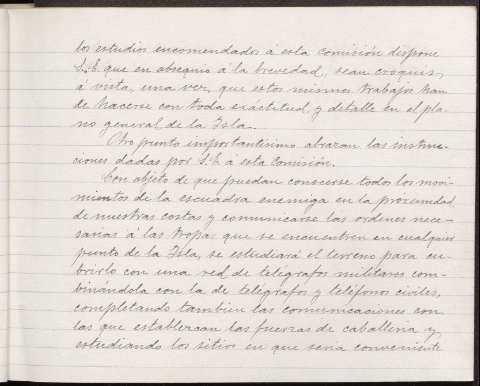 los estudios encomendados á esta Comisión dispone
S. E. que en obsequio á la brevedad, sean croquis,
á vista, una vez, que estos mismos trabajos han
de hacerse con toda exáctitud y detalle en el pla-
no general de la Isla.
Otro punto importantisimo abrazan las instruc-
ciones dadas por S. E. á esta Comisión.
Con objeto de que puedan conocerse todos los movi-
mientos de la escuadra enemiga en la proximidad
de nuestras costas y comunicarse las ordenes nece-
sarias á las tropas que se encuentren en cualquier
punto de la Isla, se estudiará el terreno para cu-
brirlo con una red de telégrafos militares com-
binándola con la de telégrafos y teléfonos civiles,
completando tambien las comunicaciones con
las que establezcan las fuerzas de caballeria y
estudiando los sitios en que seria conveniente